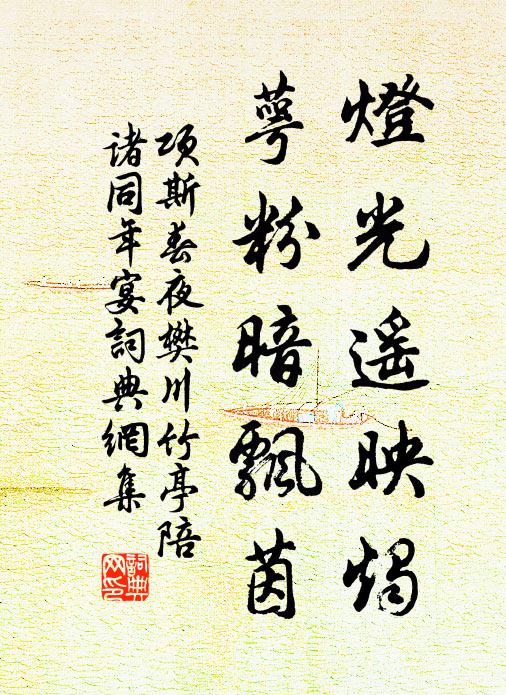 燈光遥映燭
萼粉暗飄茵
项斯春夜樊川竹亭陪
诸同年宴詞典網集
詞典
网印